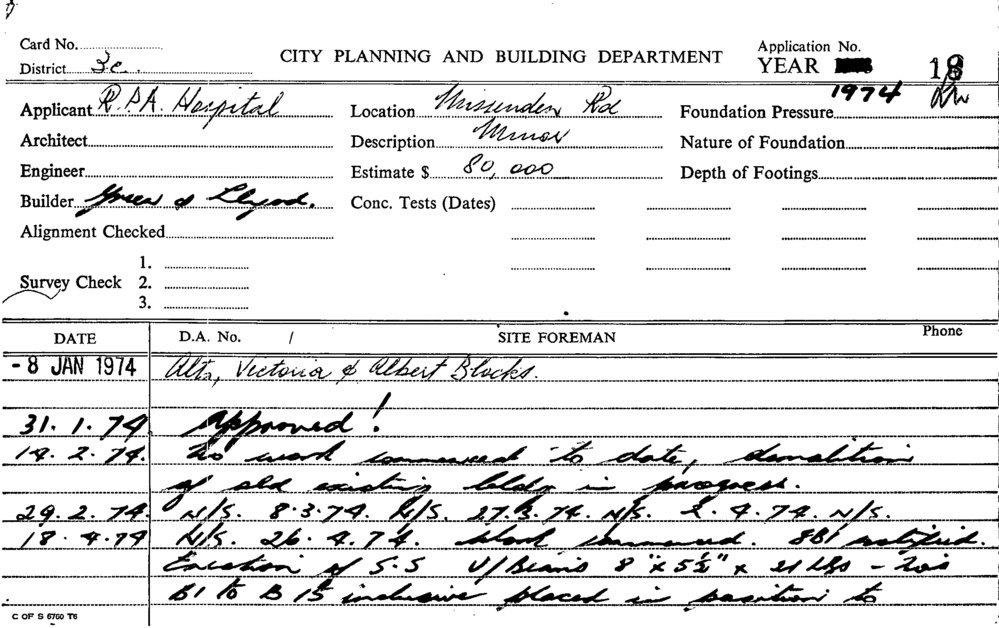 Card No.
CITY PLANNING AND BUILDING DEPARTMENT
Application No.
District 3c.
YEAR 1974 18
Applicant R.P.A. Hospital
Location Missenden Rd
Foundation Pressure
Architect
Description Minor
Nature of Foundation
Engineer
Estimate $ 80,000
Depth of Footings
Builder
Conc. Tests (Dates)
Alignment Checked
Survey Check 1.
2.
3.
DATE D.A. No. / SITE FOREMAN Phone
- 8 JAN 1974 Alts, Victoria & Albert Blocks.
31. 1. 74 Approved!
14. 2. 74. No work commenced to date, demolition
of old existing bldg in progress.
29. 2. 74. N/S. 8.3.74. N/S. 27.3.74. N/S. 2.4.74. N/S.
18. 4. 74 N/S. 26. 4. 74. Work commenced. SBI notified.
Erection of S.S U/Beams 8" x 5½" x 21 Lbs - No's
B1 to B 15 inclusive placed in position to
C OF S 6760 T6